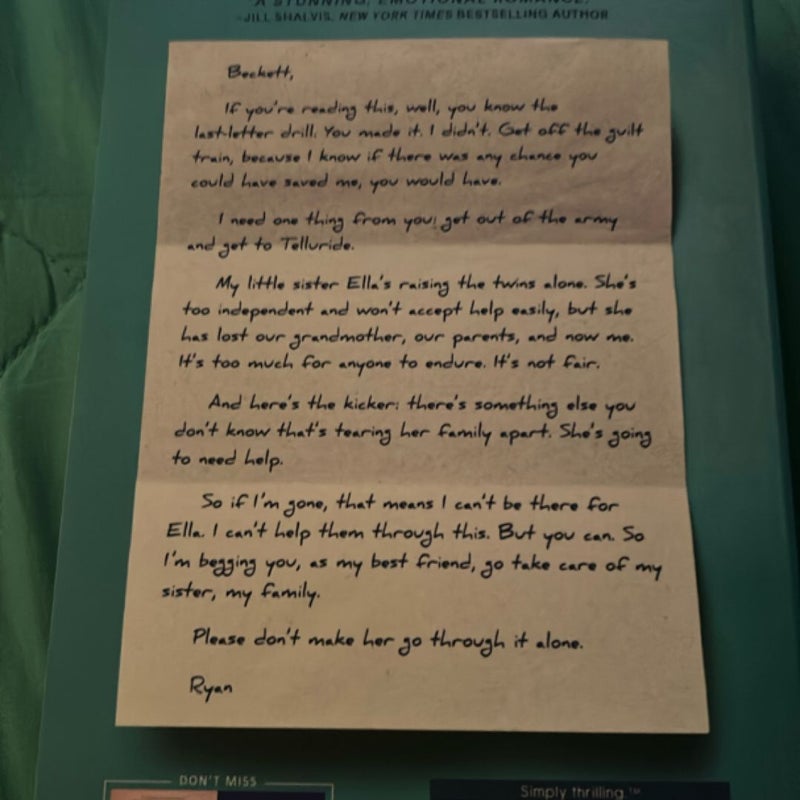 A STUNNING, EMOTIONAL ROMANCE.
-JILL SHALVIS, NEW YORK TIMES BESTSELLING AUTHOR
Beckett,
If you're reading this, well, you know the
last-letter drill. You made it. I didn't. Get off the guilt
train, because I know if there was any chance you
could have saved me, you would have.
I need one thing from you: get out of the army
and get to Telluride.
My little sister Ella's raising the twins alone. She's
too independent and won't accept help easily, but she
has lost our grandmother, our parents, and now me.
It's too much for anyone to endure. It's not fair.
And here's the kicker: there's something else you
don't know that's tearing her family apart. She's going
to need help.
So if I'm gone, that means I can't be there for
Ella. I can't help them through this. But you can. So
I'm begging you, as my best friend, go take care of my
sister, my family.
Please don't make her go through it alone.
Ryan
DON'T MISS
Simply thrilling.™